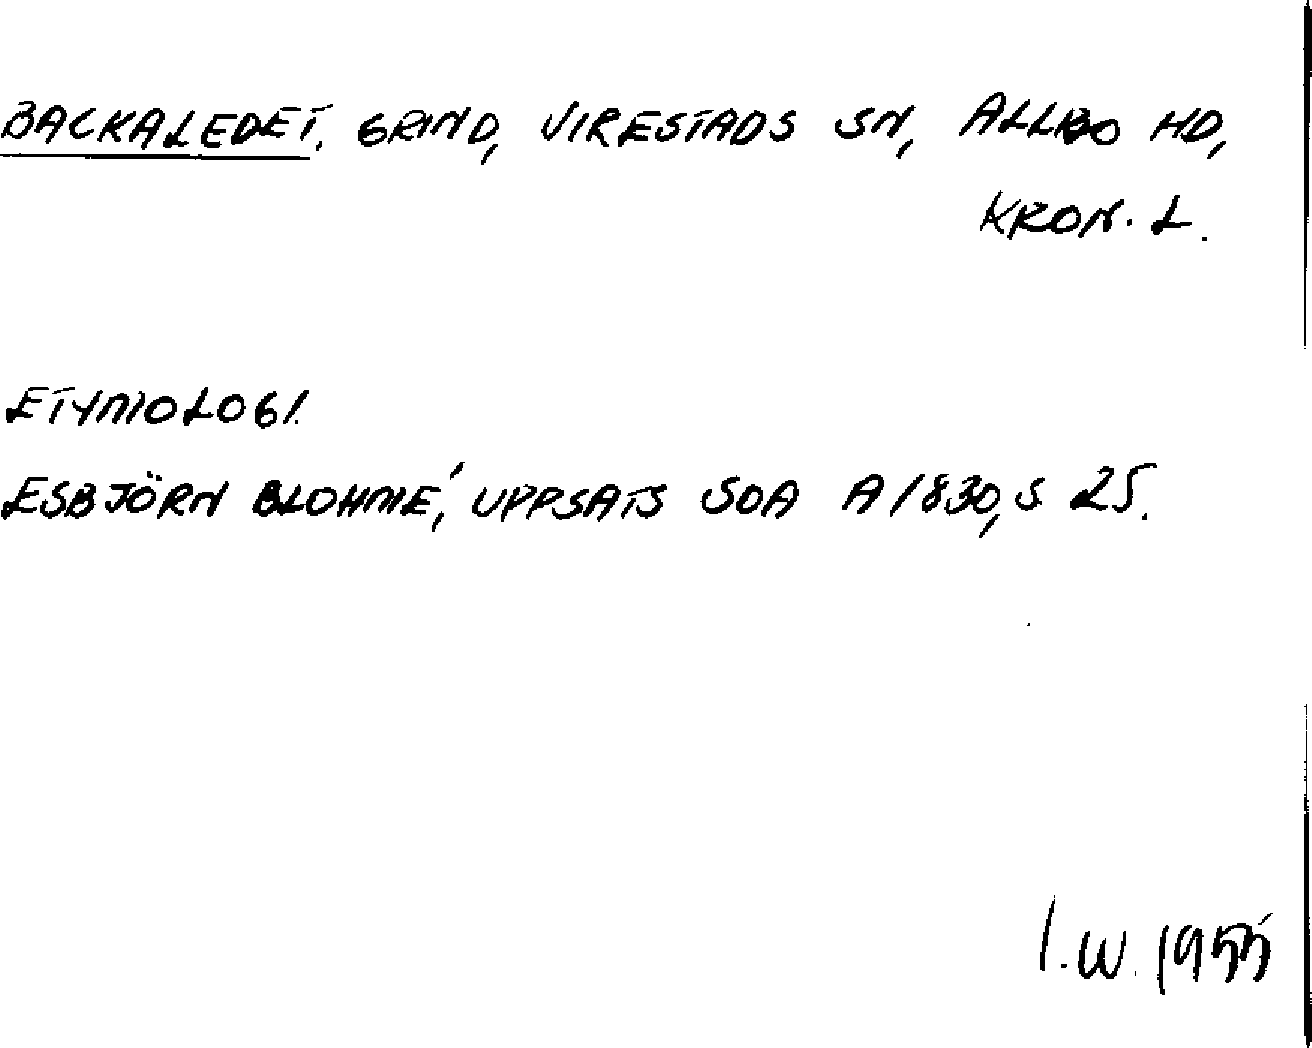 BACKALEDET. GRIND, VIRESTADS SN, ALLBO HD,
KRON. L.
ETYMOLOGI.
ESBJÖRN BLOHMÉ, UPPSATS SOA A 1830, S 25.
I. W. 1955